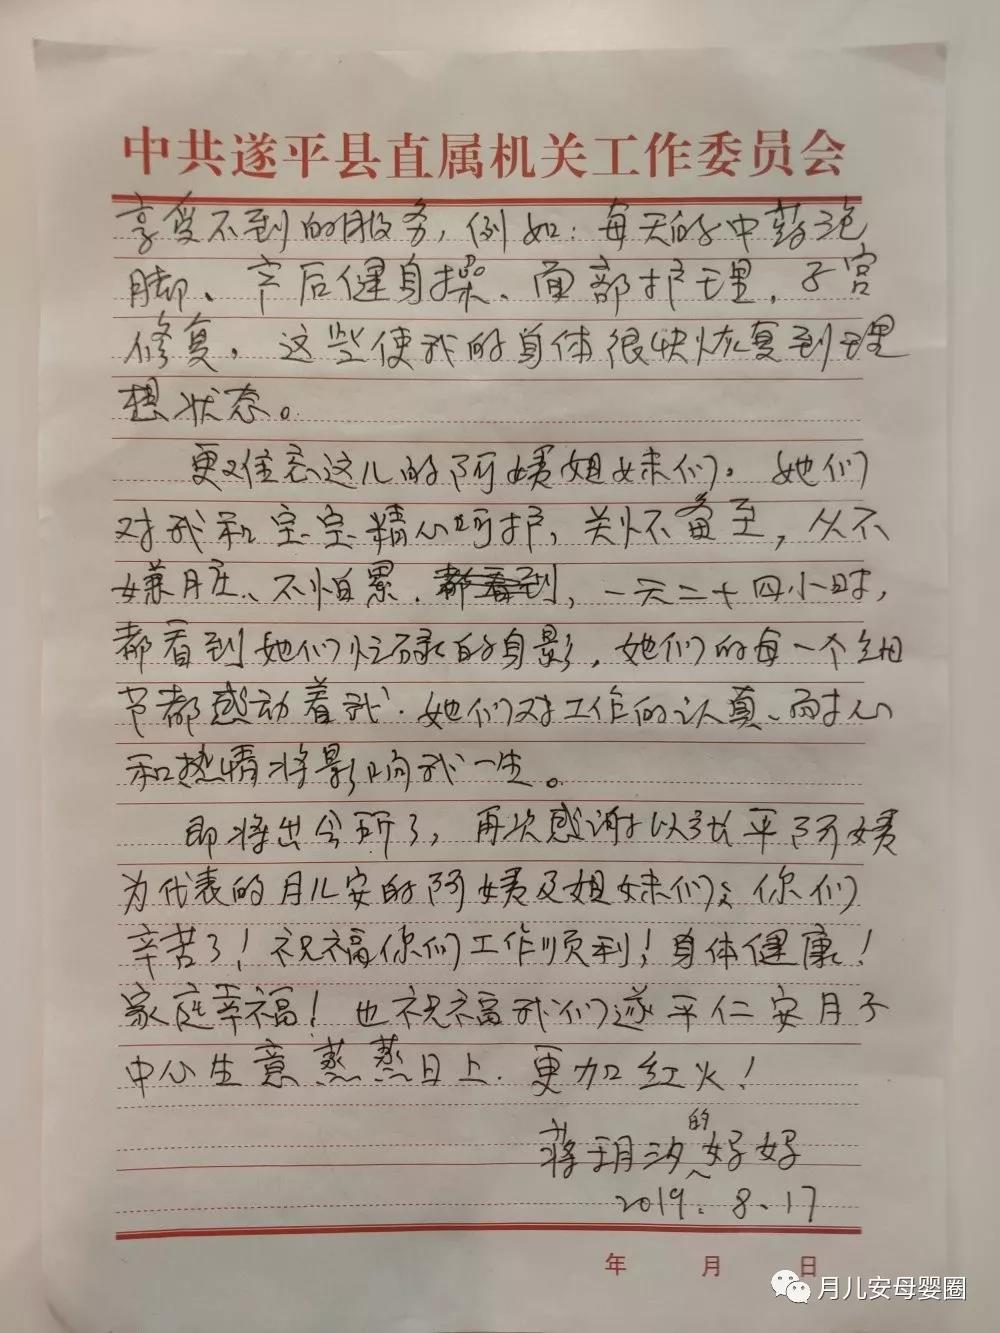 中共遂平县直属机关工作委员会
享受不到的服务，例如：每天的中药泡
脚、产后健身操、面部护理、子宫
修复，这些使我的身体很快恢复到理
想状态。
更难忘这儿的阿姨姐妹们。她们
对我和宝宝精心呵护，关怀备至，从不
嫌脏、不怕累，都看到，一天二十四小时，
都看到她们忙碌的身影，她们的每一个细
节都感动着我．她们对工作的认真、耐心
和热情将影响我一生。
即将出会所了，再次感谢以张平阿姨
为代表的月儿安的阿姨及姐妹们；你们
辛苦了！祝福你们工作顺利！身体健康！
家庭幸福！也祝福我们遂平仁安月子
中心生意蒸蒸日上．更加红火！
蒋玥汐的妈妈
2019.8.17
年 月 日
月儿安母婴圈